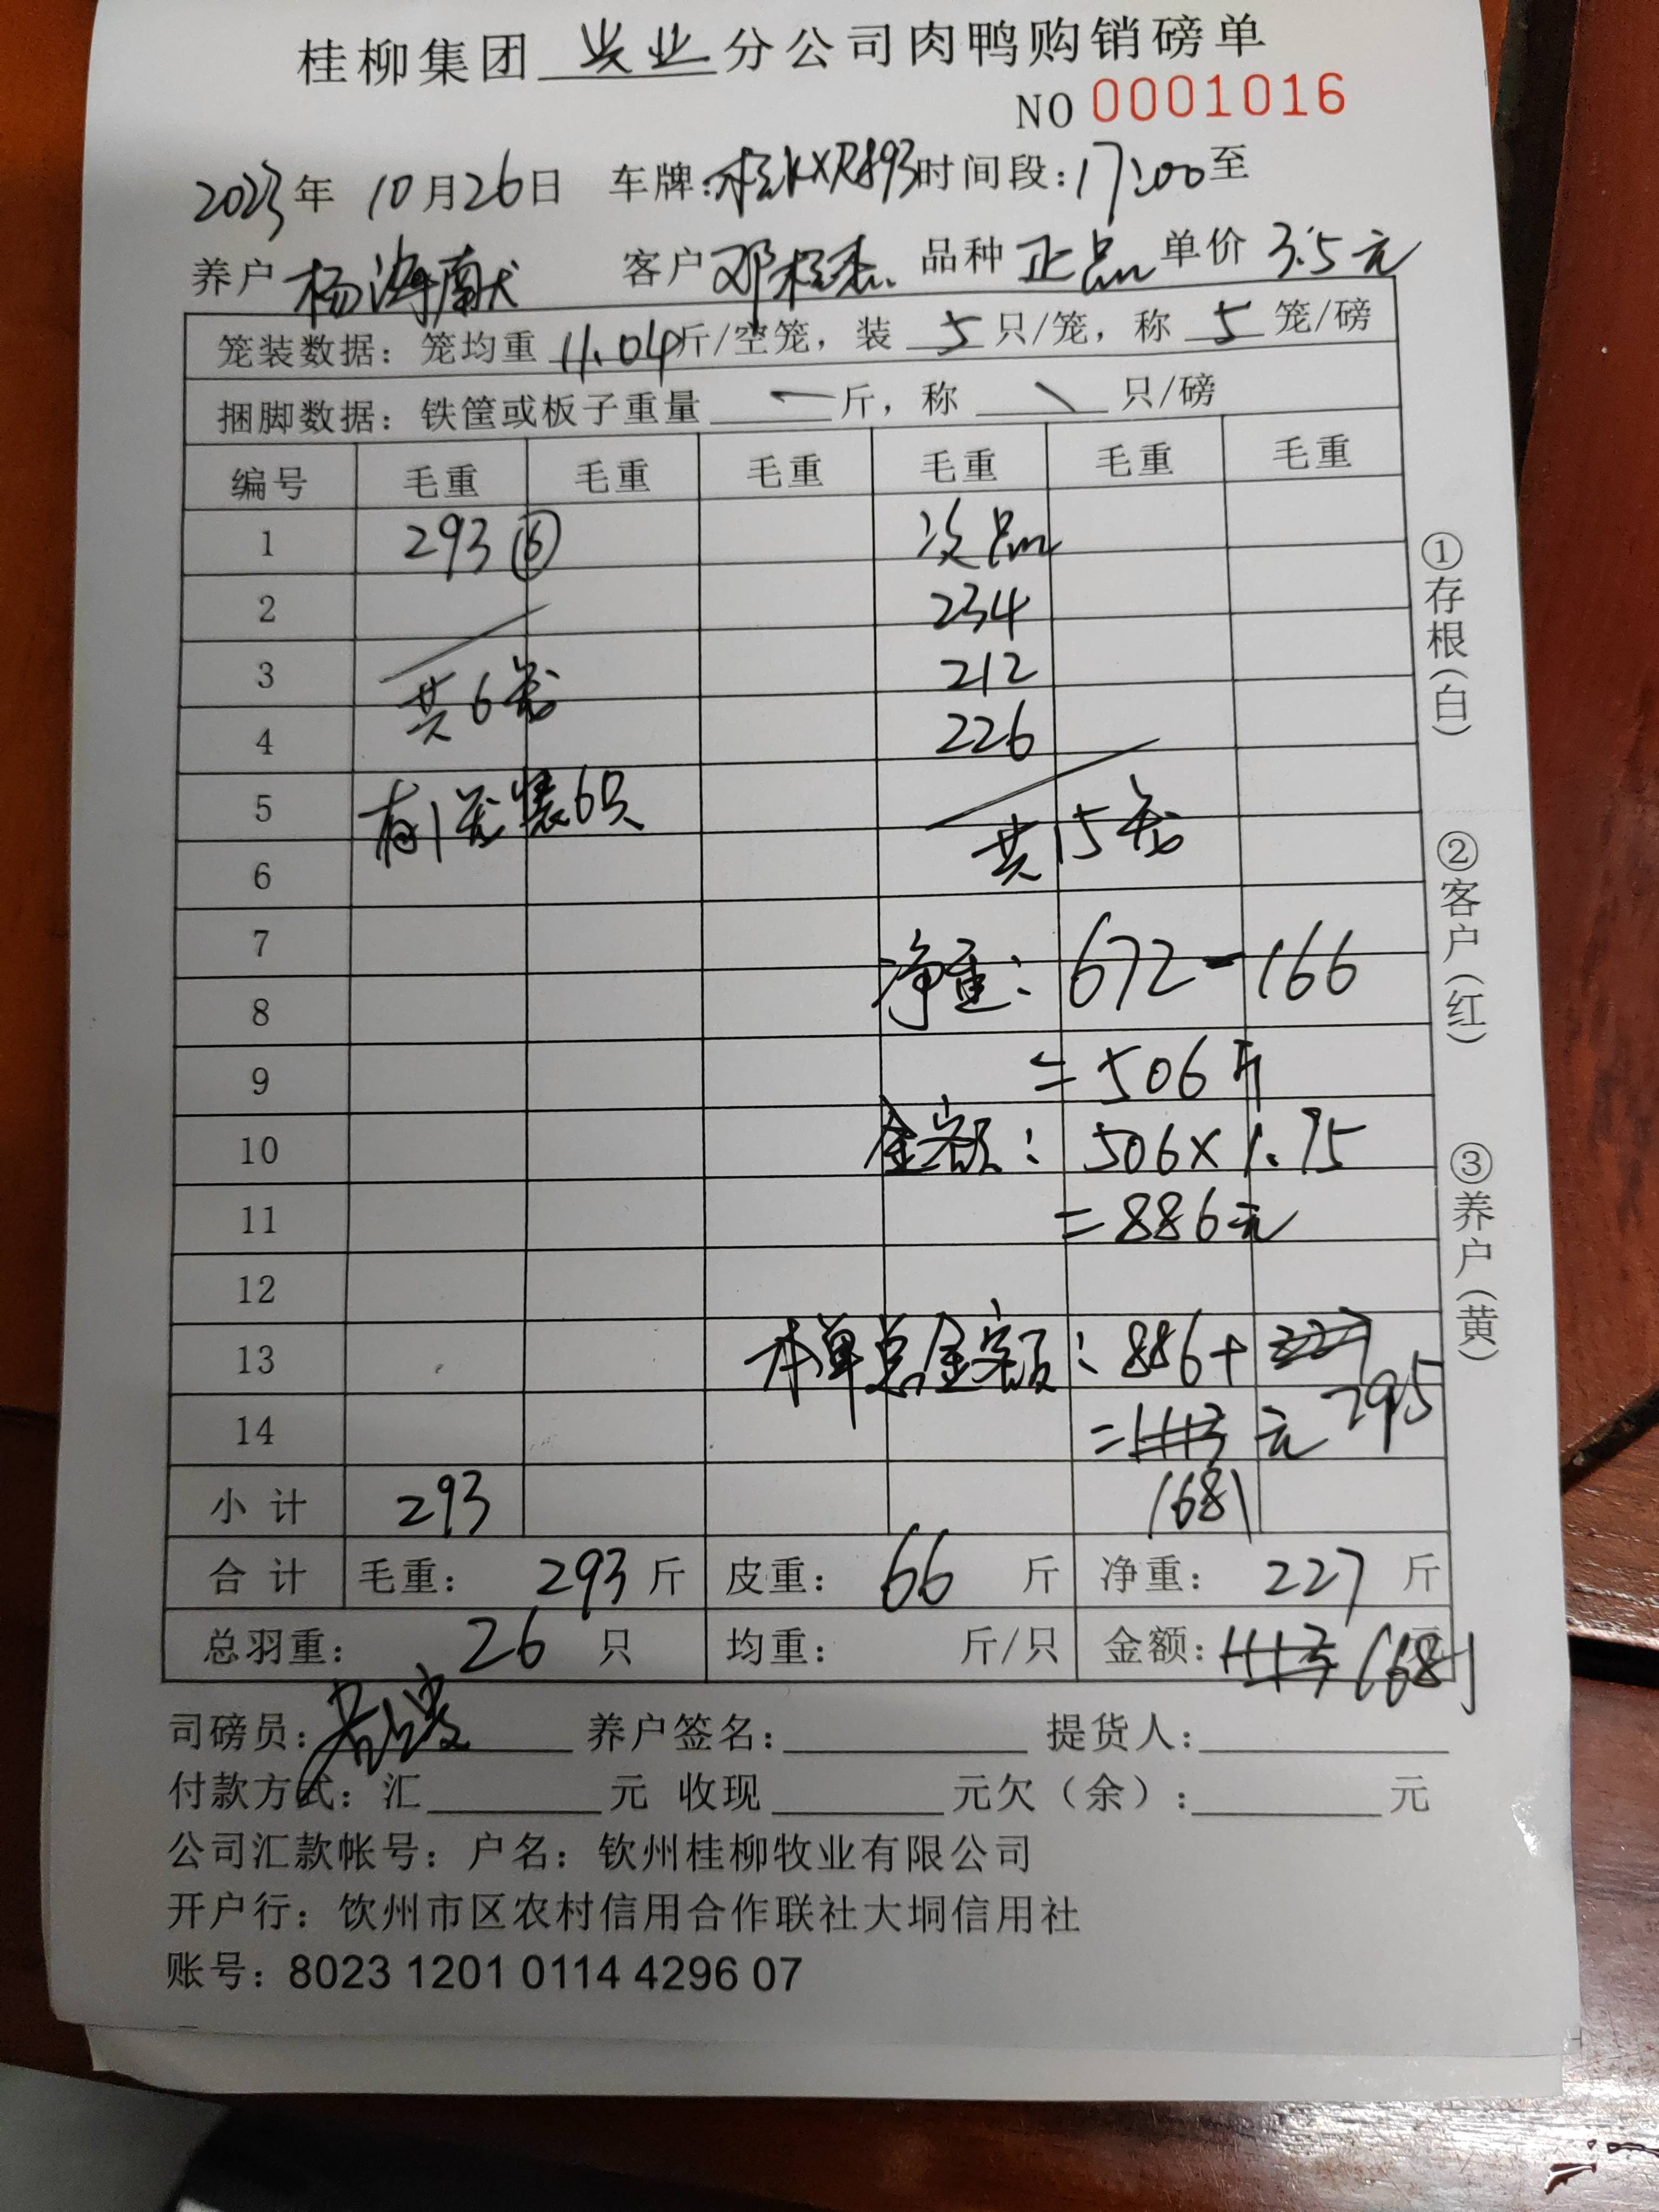 桂柳集团 兴业 分公司肉鸭购销磅单
NO 0001016
2023年 10月26日 车牌: 时间段:17:00至
养户 杨海献 客户 邓桂杰 品种 正品 单价 3.5元
笼装数据: 笼均重 11.04斤/空笼, 装 5 只/笼, 称 5 笼/磅
捆脚数据: 铁筐或板子重量 一 斤, 称 \ 只/磅
编号 毛重 毛重 毛重 毛重 毛重 毛重
1 293 ⑥ 次品
2 234
3 共6笼 212
4 226
5 有1笼装6只 共15笼
6
7 净重: 672-166
8
9 =506斤
10 金额: 506×1.75
11 =886元
12
13 本单总金额: 886+ 227 795
14 =1113元
1681
小计 293
合计 毛重: 293 斤 皮重: 66 斤 净重: 227 斤
总羽重: 26 只 均重: 斤/只 金额: 1113 1681元
司磅员: 养户签名: 提货人:
付款方式: 汇 元 收现 元欠(余): 元
公司汇款帐号: 户名: 钦州桂柳牧业有限公司
开户行: 饮州市区农村信用合作联社大垌信用社
账号: 8023 1201 0114 4296 07
①存根(白)
②客户(红)
③养户(黄)